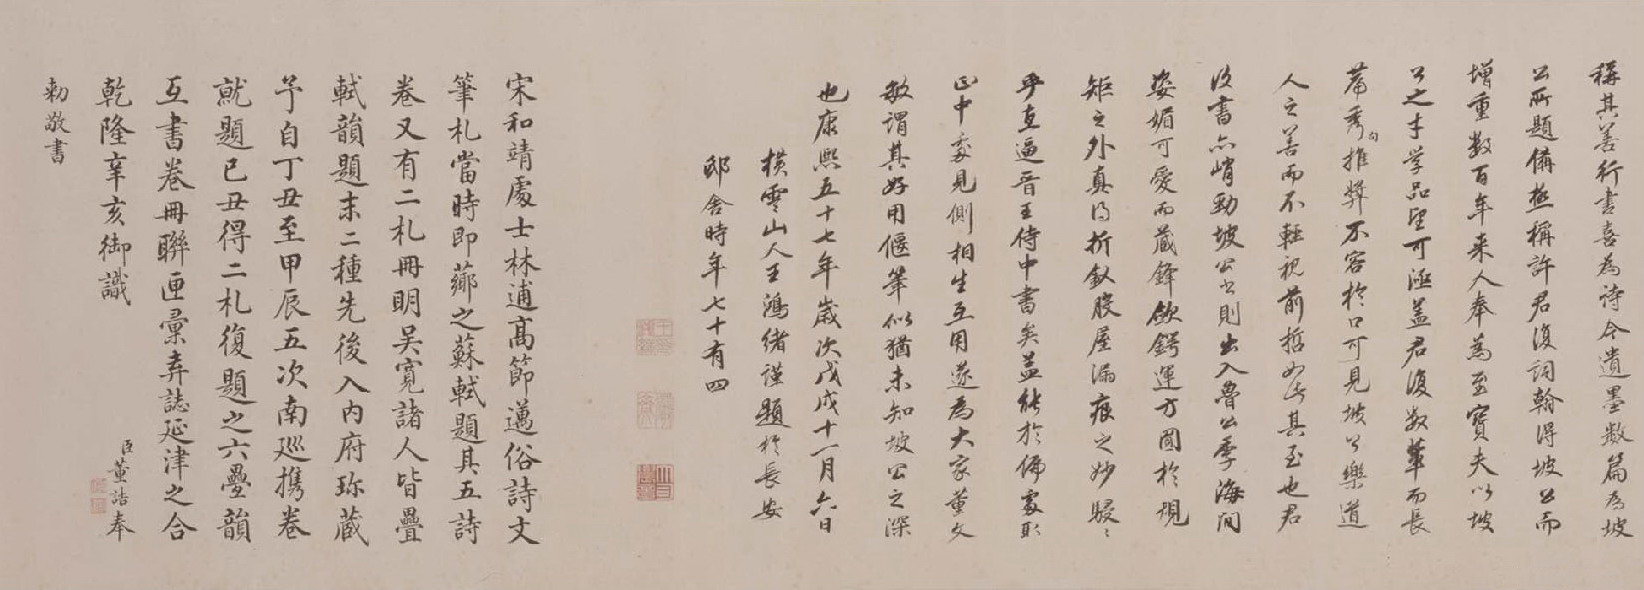 稱其善行書喜為詩今遺墨數篇為坡
公所題備極稱許君復詞翰得坡公而
增重數百年來人奉為至寶夫以坡
公之才學品望可涵蓋君復數輩而長
篇秀句推獎不容於口可見坡公樂道
人之善而不輕視前哲如此其至也君
復書亦峭勁坡公書則出入魯公季海間
姿媚可愛而藏鋒斂鍔運方圓於規
矩之外真得折釵股屋漏痕之妙駸〻
乎直逼晉王侍中書矣蓋能於偏處取
正中處見側相生互用遂為大家董文
敏謂其好用偃筆似猶未知坡公之深
也康熙五十七年歲次戊戌十一月六日
橫雲山人王鴻緒謹題於長安
邸舍時年七十有四
宋和靖處士林逋高節邁俗詩文
筆札當時即薌之蘇軾題其五詩
卷又有二札冊明吳寬諸人皆疊
軾韻題末二種先後入內府珎藏
予自丁丑至甲辰五次南巡攜卷
就題已丑得二札復題之六疊韻
互書卷冊聯匣彙弆誌延津之合
乾隆辛亥御識
臣董誥奉
勅敬書